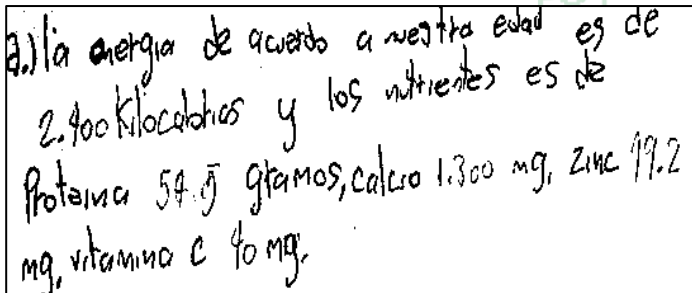 a.) la energia de acuerdo a nuestra edad es de
2.400 Kilocalorias y los nutrientes es de
Proteina 54.5 gramos, calcio 1.300 mg, zinc 19.2
mg, vitamina c 40 mg.